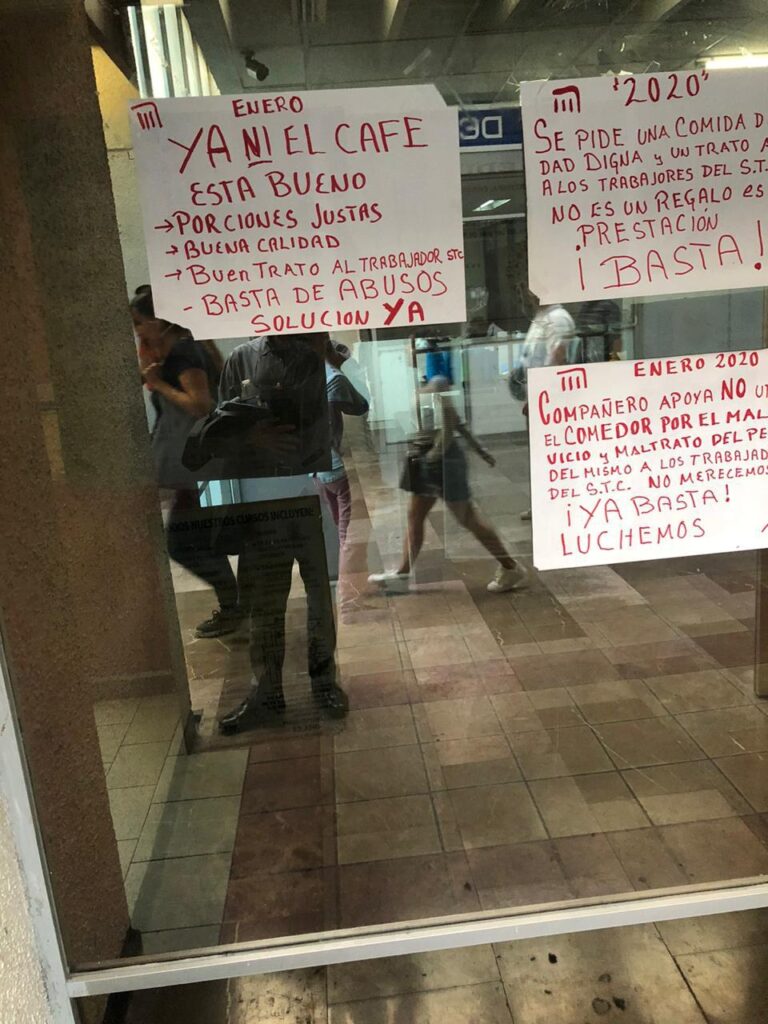 ENERO
YA NI EL CAFE
ESTA BUENO
→PORCIONES JUSTAS
→BUENA CALIDAD
→BUEN TRATO AL TRABAJADOR STC
- BASTA DE ABUSOS
SOLUCION YA
"2020"
SE PIDE UNA COMIDA D
DAD DIGNA y UN TRATO A
A LOS TRABAJORES DEL S.T.
NO ES UN REGALO es
PRESTACIÓN
¡BASTA!
ENERO 2020
COMPAÑERO APOYA NO U
EL COMEDOR POR EL MAL
VICIO y MALTRATO DEL PE
DEL MISMO A LOS TRABAJAD
DEL S.T.C. NO MERECEMOS
¡YA BASTA!
LUCHEMOS
DE
NUESTROS CURSOS INCLUYEN: